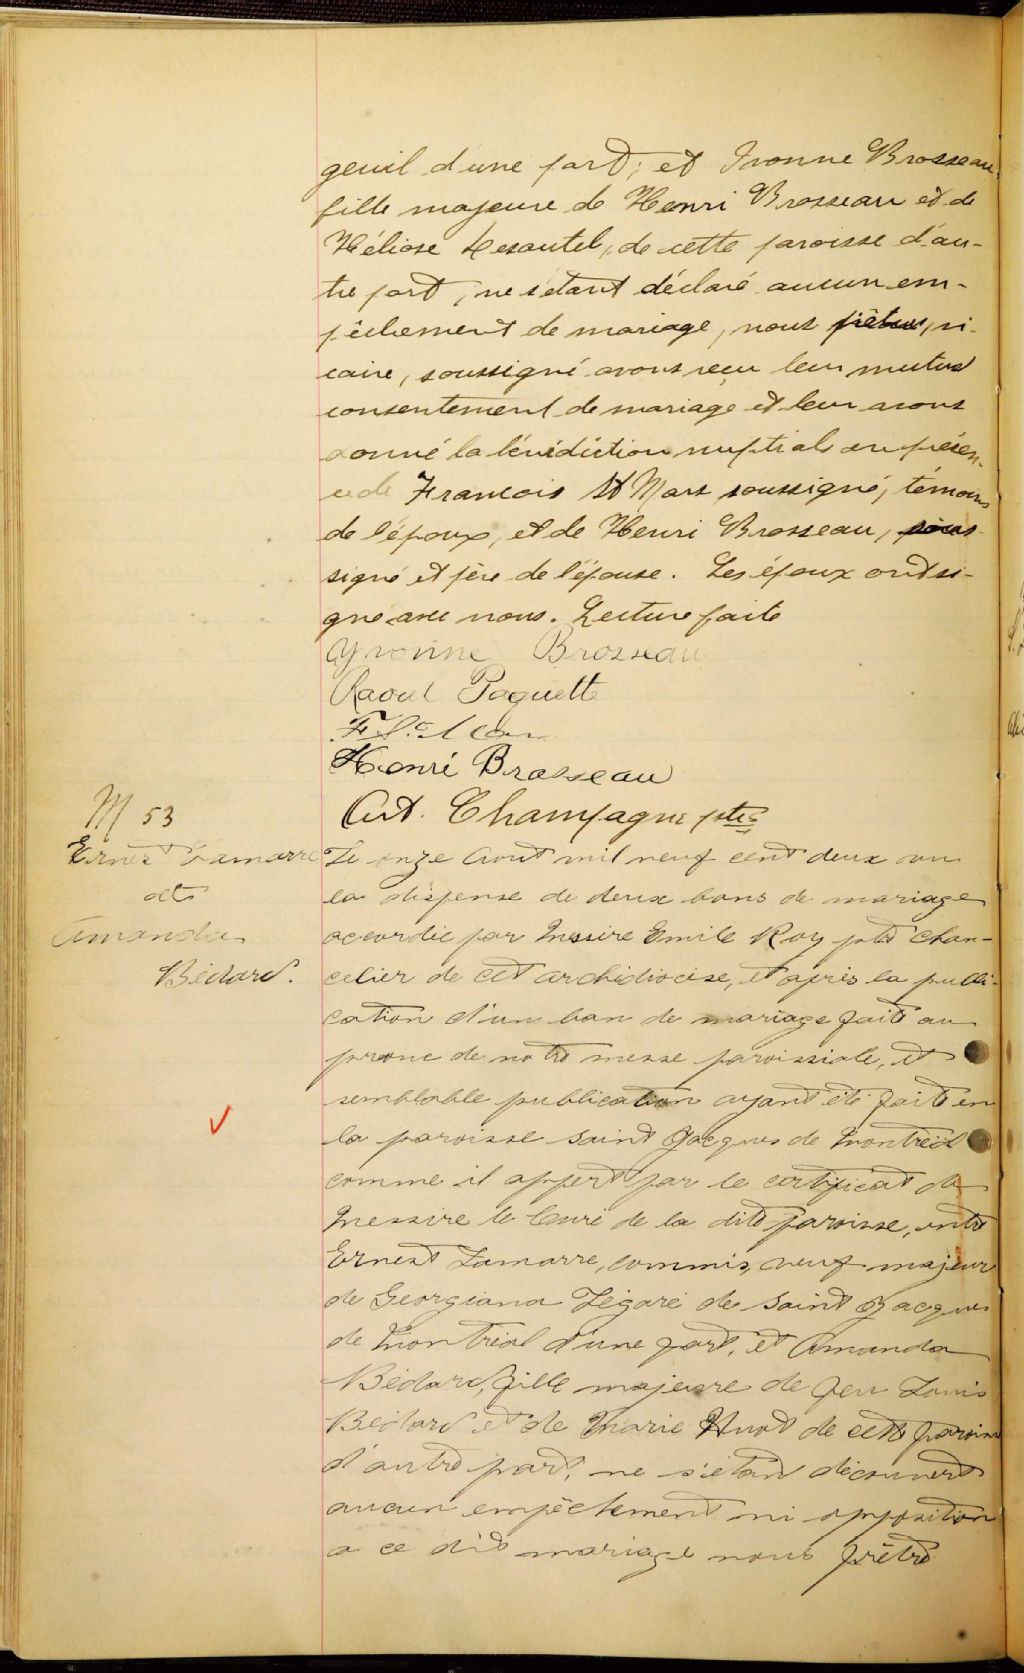 geuil d'une part; et Ivonne Brosseau,
fille majeure de Henri Brosseau et de
Héliose Lesautel, de cette paroisse d'au-
tre part, ne s'étant déclaré aucun em-
pêchement de mariage, nous prêtre, vi-
caire, soussigné avons reçu leur mutuel
consentement de mariage et leur avons
donné la bénédiction nuptiale en présen-
ce de Francois St Mars soussigné, témoins
de l'époux, et de Henri Brosseau, sous-
signé et père de l'épouse. Les époux ont si-
gné avec nous. Lecture faite
Yvonne Brosseau
Raoul Paquette
Henri Brasseau
Art. Champagne ptre
M 53
Ernest Lamarre
et
Amanda
Bédard.
Le onze Aout mil neuf cent deux vu
la dispense de deux bans de mariage
accordée par Messire Emile Roy ptre chan-
celier de cet archidiocèse, et après la publi-
cation d'un ban de mariage faite au
prone de notre messe paroissiale, et
semblable publication ayant été faite en
la paroisse saint Jacques de Montréal
comme il appert par le certificat de
Messire le Curé de la dite paroisse, entre
Ernest Lamarre, commis, veuf majeur
de Georgiana Légaré de Saint Jacques
de Montréal d'une part, et Amanda
Bédard, fille majeure de feu Louis
Bédard et de Marie Huot de cette paroisse
d'autre part, ne s'étant découvert
aucun empêchement ni opposition
a ce dit mariage nous prêtre